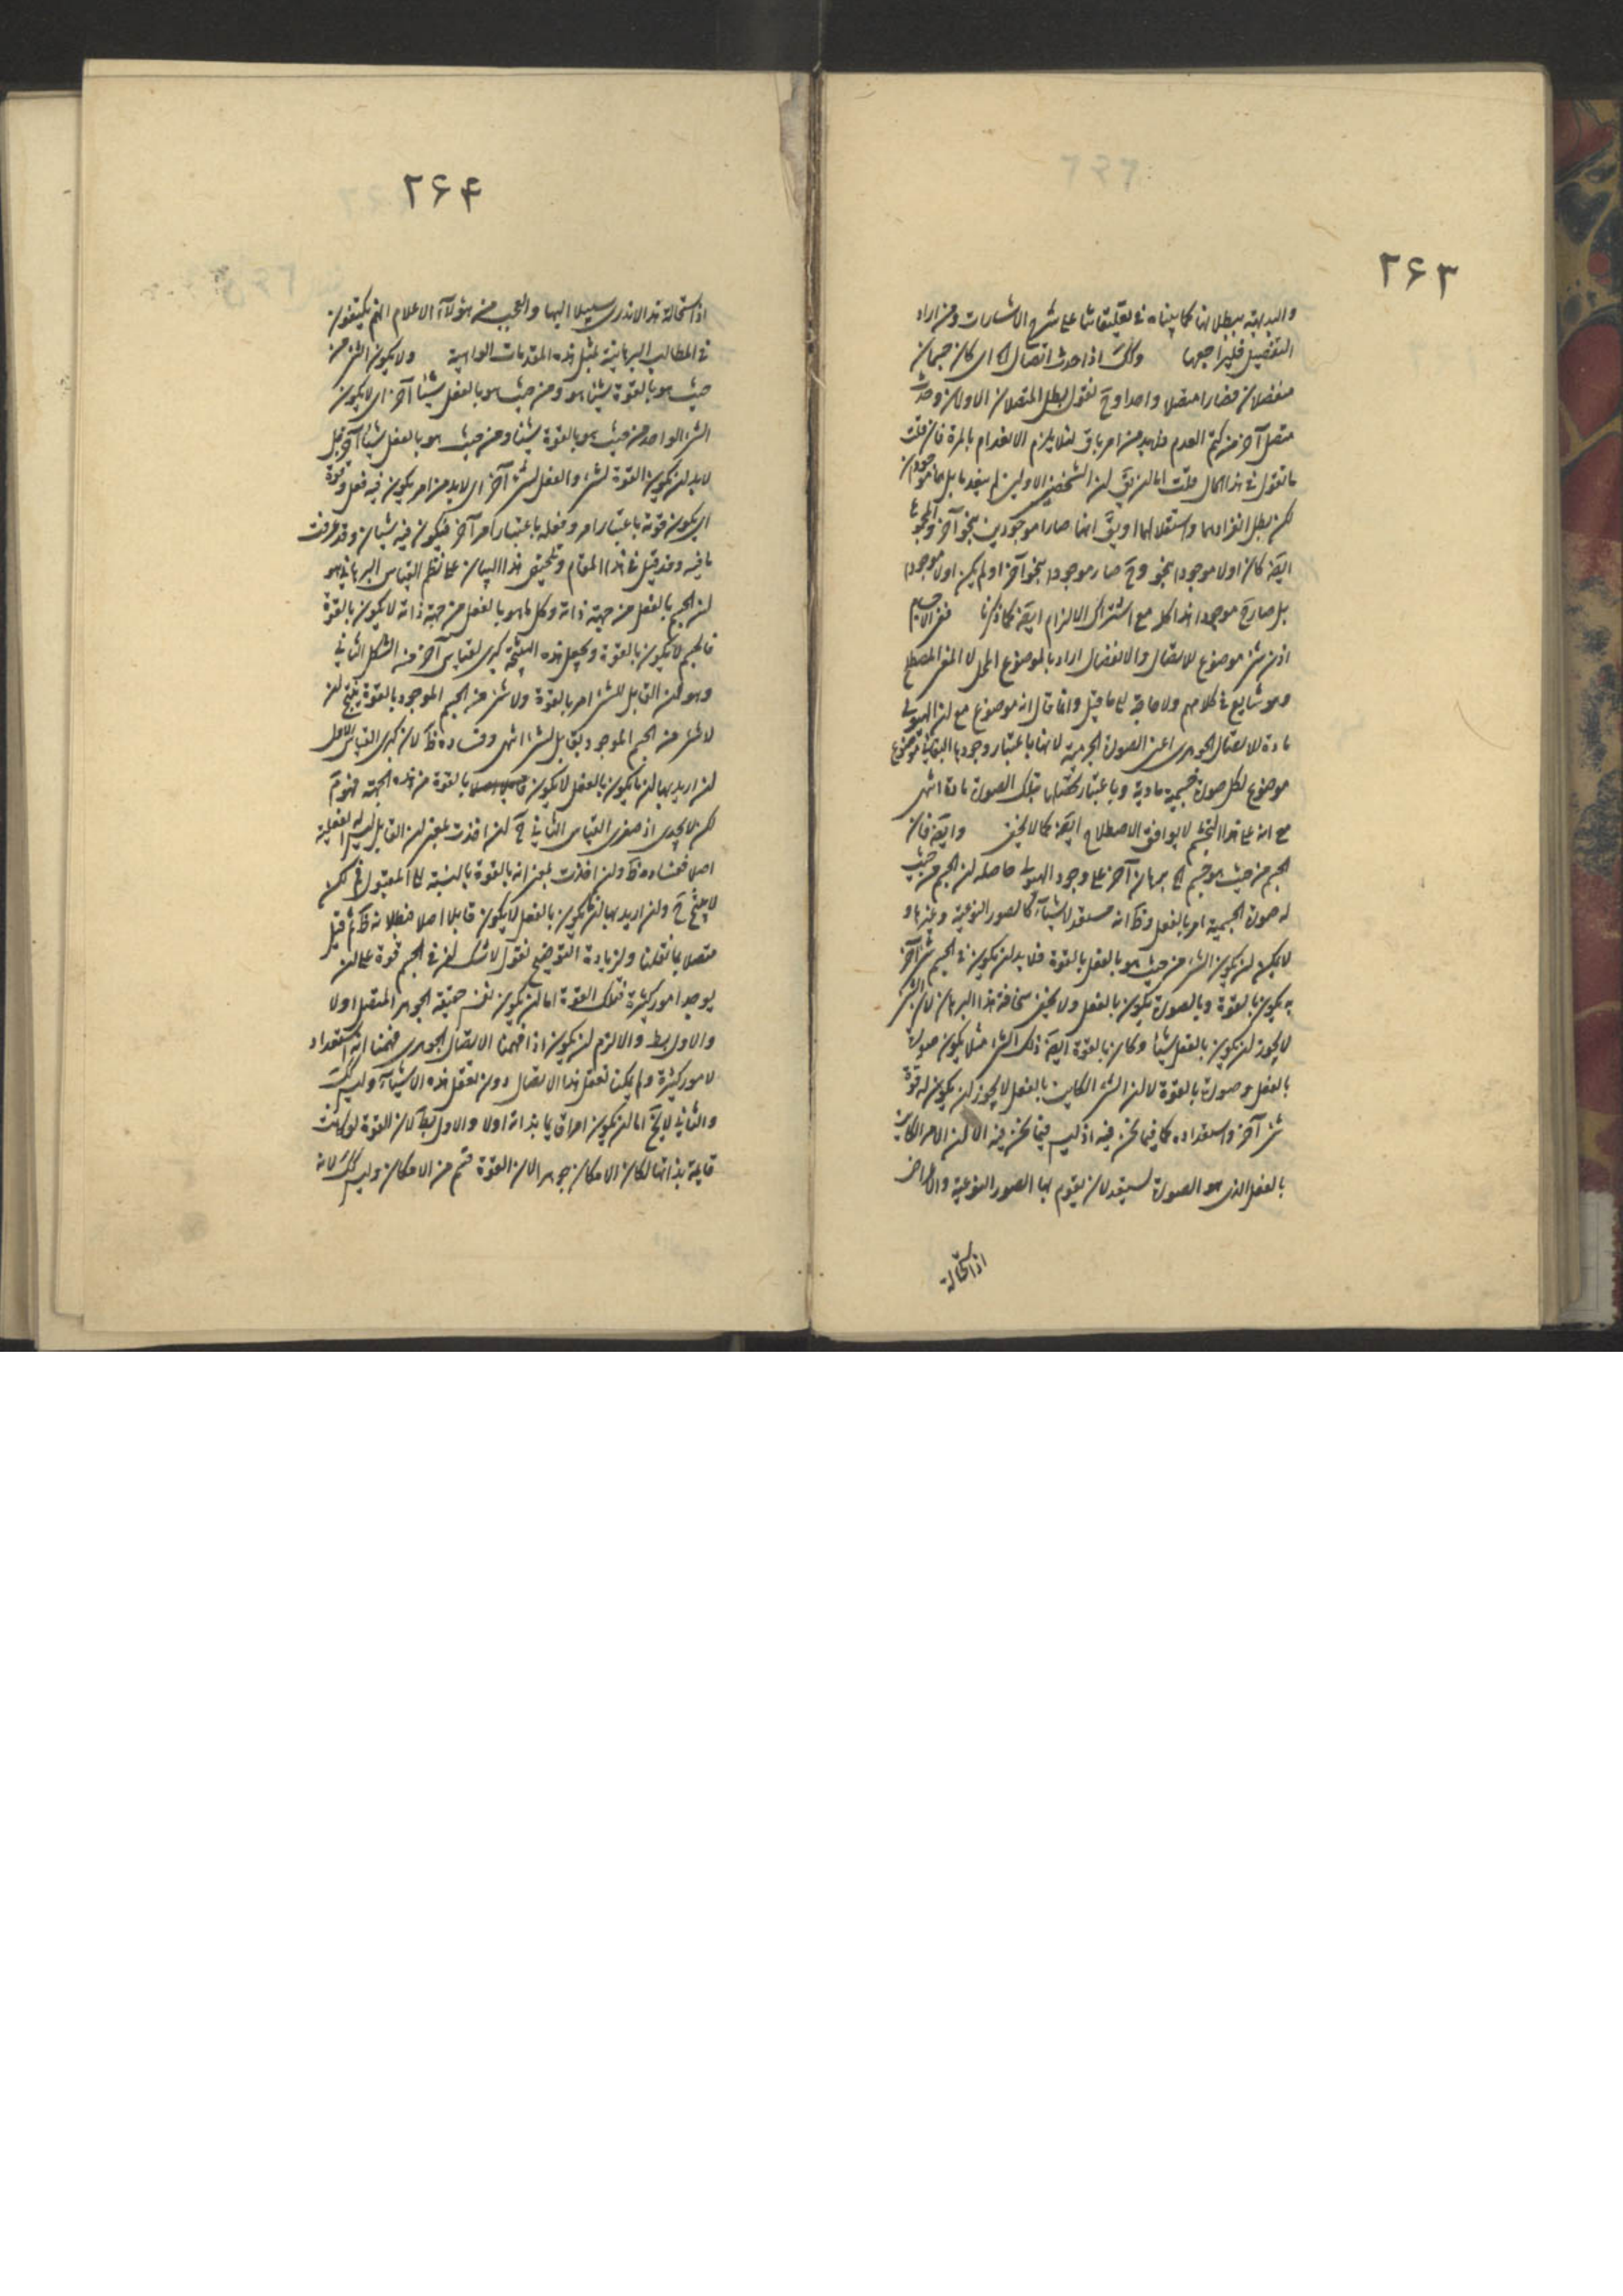 ٢۶٣
والبديهة ببطلانها كما بيناه في تعليقاتنا على شرح الاشارات ومن اراد
التفصيل فليراجعها وكك اذا حدث اتصال اى كان جسمان
منفصلان فصارا متصلا واحدا وح نقول بطل المتصلان الاولان وحدث
متصل آخر من كتم العدم فلا بد من امر باق لئلا يلزم الانعدام بالمرة فان قلت
ما تقول في هذا الحال قلت اما ان يق ان الشخصين الاولين لم ينعدما بل هما موجودان
لكن بطل انفرادهما واستقلالهما او يق انهما صارا موجودين بنحو آخر
ايضا كان اولا موجودا بنحو وح صار موجودا بنحو آخر او لم يكن اولا موجودا
بل صار ح موجودا هذا كله مع اشتراك الالزام ايضا كما ذكرنا ففي الاجسام
اذن شئ موضوع للاتصال والانفصال اراد بالموضوع المحل لا المعنى المصطلح
وهو شايع في كلامهم ولا حاجة الى ما قيل وانما قال انه موضوع مع ان الهيولى
مادة للاتصال الجوهرى اعنى الصورة الجرمية لانها باعتبار وجودها
موضوع لكل صورة جسمية مادية وباعتبار تلك الصورة مادة انتهى
مع انه على هذا التجشم لا يوافق الاصطلاح ايضا كما لا يخفى وايضا فان
الجسم من حيث هو جسم الخ برهان آخر على وجود الهيولى حاصله ان الجسم من حيث
له صورة الجسمية امر بالفعل وظ انه مستعد لاشياء كالصور النوعية وغيرها و
لا يمكن ان يكون الشئ من حيث هو بالفعل بالقوة فلا بد ان يكون في الجسم شئ آخر
به يكون بالقوة وبالصورة يكون بالفعل ولا يخفى سخافة هذا البرهان لان الشئ
لا يجوز ان يكون بالفعل شيئا وكان بالقوة ايضا ذلك الشئ مثلا يكون صورة
بالفعل وصورة بالقوة لا ان الشئ الكاين بالفعل لا يجوز ان يكون له قوة
شئ آخر واستعداده كما فيما نحن فيه اذ ليس فيما نحن فيه الا ان الامر الكاين
بالفعل الذى هو الصورة يستعد لان يقوم بها الصور النوعية والاعراض
اذ استحالة
٢۶۴
اذ استحالة هذا لا ندرى سبيلا اليها والعجب من هؤلاء الاعلام انهم يكتفون
في المطالب البرهانية بمثل هذه المقدمات الواهية ولا يكون الشئ من
حيث هو بالقوة شيئا هو ومن حيث هو بالفعل شيئا آخر اى لا يكون
الشئ الواحد من حيث هو بالقوة شيئا ومن حيث هو بالفعل شيئا آخر بل
لا بد ان يكون القوة لشئ والفعل لشئ آخر اى لا بد من امر يكون فيه فعل وقوة
اى يكون قوته باعتبار امر وفعله باعتبار امر آخر فيكون فيه شيئان وقد عرفت
ما فيه وقد قيل في هذا المقام وتحقيق هذا البيان على نظم القياس البرهاني هو
ان الجسم بالفعل من جهة ذاته وكل ما هو بالفعل من جهة ذاته لا يكون بالقوة
فالجسم لا يكون بالقوة ونجعل هذه النتيجة كبرى لقياس آخر من الشكل الثاني
وهو ان القابل للشئ امر بالقوة ولا شئ من الجسم الموجود بالقوة ينتج ان
لا شئ من الجسم الموجود بقابل لشئ انتهى وفساده ظ لان كبرى القياس الاول
ان اريد بها ان ما يكون بالفعل لا يكون بالقوة من هذه الجهة فهو م
لكن لا يجدى اذ صغرى القياس الثاني ح ان اخذت بمعنى ان القابل ليس له الفعلية
اصلا ففساده ظ وان اخذت بمعنى انه بالقوة بالنسبة الى المقبول لكن
لا ينتج ح وان اريد بها ان ما يكون بالفعل لا يكون قابلا اصلا فبطلانه ظ ثم قيل
متصلا بما نقلنا ولزيادة التوضيح نقول لا شك ان في الجسم قوة على ان
يوجد امور كثيرة فتلك القوة اما ان يكون نفس حقيقة الجوهر المتصل او لا
والاول بط والا لزم ان يكون اذا فهمنا الاتصال الجوهرى فهمنا انه استعداد
لامور كثيرة ولم يمكن تعقل هذا الاتصال دون تعقل هذه الاشياء وليس كك
والثاني لا يخ اما ان يكون امرا قايما بذاته او لا والاول بط لان القوة لو كانت
قايمة بذاتها لكان الامكان جوهرا لان القوة قسم من الامكان وليس كك لانه